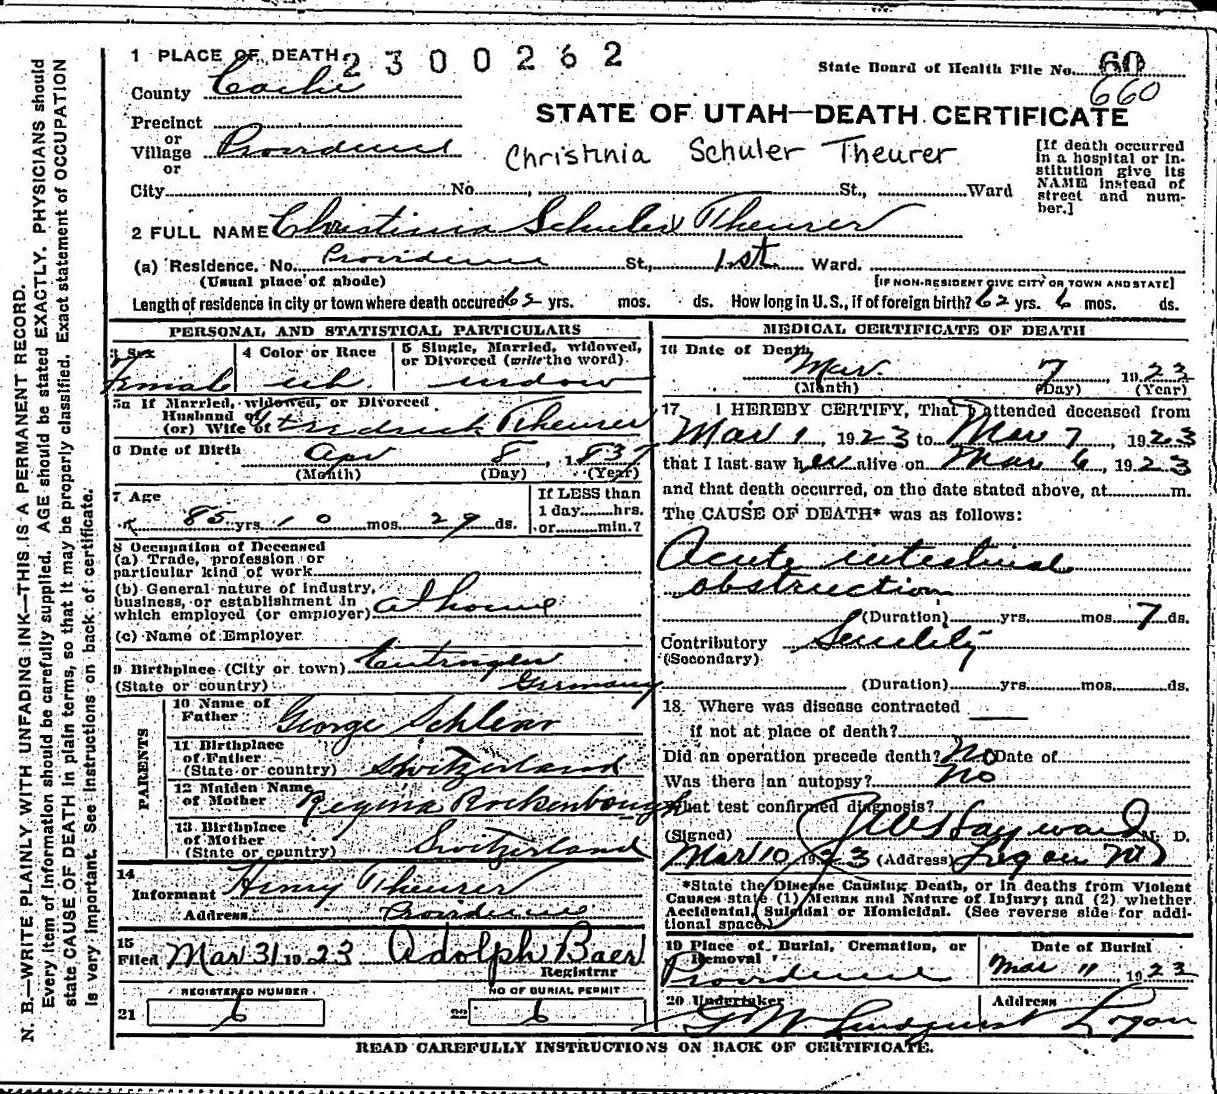 1 PLACE OF DEATH 2300262
State Board of Health File No. 60
660
County Cache
STATE OF UTAH—DEATH CERTIFICATE
Precinct
or
Village Providence
or
Christinia Schuler Theurer
[If death occurred
in a hospital or in-
stitution give its
NAME instead of
street and num-
ber.]
City No. , St., Ward
2 FULL NAME Christinia Schuler Theurer
(a) Residence, No. Providence St., 1st Ward.
(Usual place of abode) [IF NON-RESIDENT GIVE CITY OR TOWN AND STATE]
Length of residence in city or town where death occured 62 yrs. mos. ds. How long in U.S., if of foreign birth? 62 yrs. 6 mos. ds.
PERSONAL AND STATISTICAL PARTICULARS
3 Sex 4 Color or Race 5 Single, Married, widowed,
or Divorced (write the word)
Female wh widow
5a If Married, widowed, or Divorced
Husband of
(or) Wife of Fredrick Theurer
6 Date of Birth Apr 8, 1837
(Month) (Day) (Year)
7 Age If LESS than
1 day hrs.
85 yrs. 10 mos. 29 ds. or min.?
8 Occupation of Deceased
(a) Trade, profession or
particular kind of work
(b) General nature of industry,
business, or establishment in
which employed (or employer) at home
(c) Name of Employer
9 Birthplace (City or town)
(State or country) Germany
PARENTS
10 Name of
Father George
11 Birthplace
of Father
(State or country) Switzerland
12 Maiden Name
of Mother Regina Rockenbough
13 Birthplace
of Mother
(State or country) Switzerland
14
Informant Henry Theurer
Address Providence
15
Filed Mar 31 1923 Adolph Baer
Registrar
REGISTERED NUMBER NO OF BURIAL PERMIT
21 6 22 6
MEDICAL CERTIFICATE OF DEATH
16 Date of Death
Mar 7, 1923
(Month) (Day) (Year)
17 I HEREBY CERTIFY, That I attended deceased from
Mar 1, 1923 to Mar 7, 1923
that I last saw her alive on Mar 6, 1923
and that death occurred, on the date stated above, at m.
The CAUSE OF DEATH* was as follows:
Acute intestinal
obstruction
(Duration) yrs. mos. 7 ds.
Contributory Senility
(Secondary)
(Duration) yrs. mos. ds.
18. Where was disease contracted
if not at place of death?
Did an operation precede death? No Date of
Was there an autopsy? no
What test confirmed diagnosis?
(Signed) J W Hayward M. D.
Mar 10 1923 (Address) Logan
*State the Disease Causing Death, or in deaths from Violent
Causes state (1) Means and Nature of Injury; and (2) whether
Accidental, Suicidal or Homicidal. (See reverse side for addi-
tional space.)
19 Place of Burial, Cremation, or
Removal Date of Burial
Providence Mar 11 1923
20 Undertaker Address
G W Lindquist Logan
READ CAREFULLY INSTRUCTIONS ON BACK OF CERTIFICATE.
N. B.—WRITE PLAINLY WITH UNFADING INK—THIS IS A PERMANENT RECORD.
Every item of information should be carefully supplied. AGE should be stated EXACTLY. PHYSICIANS should
state CAUSE OF DEATH in plain terms, so that it may be properly classified. Exact statement of OCCUPATION
is very important. See instructions on back of certificate.